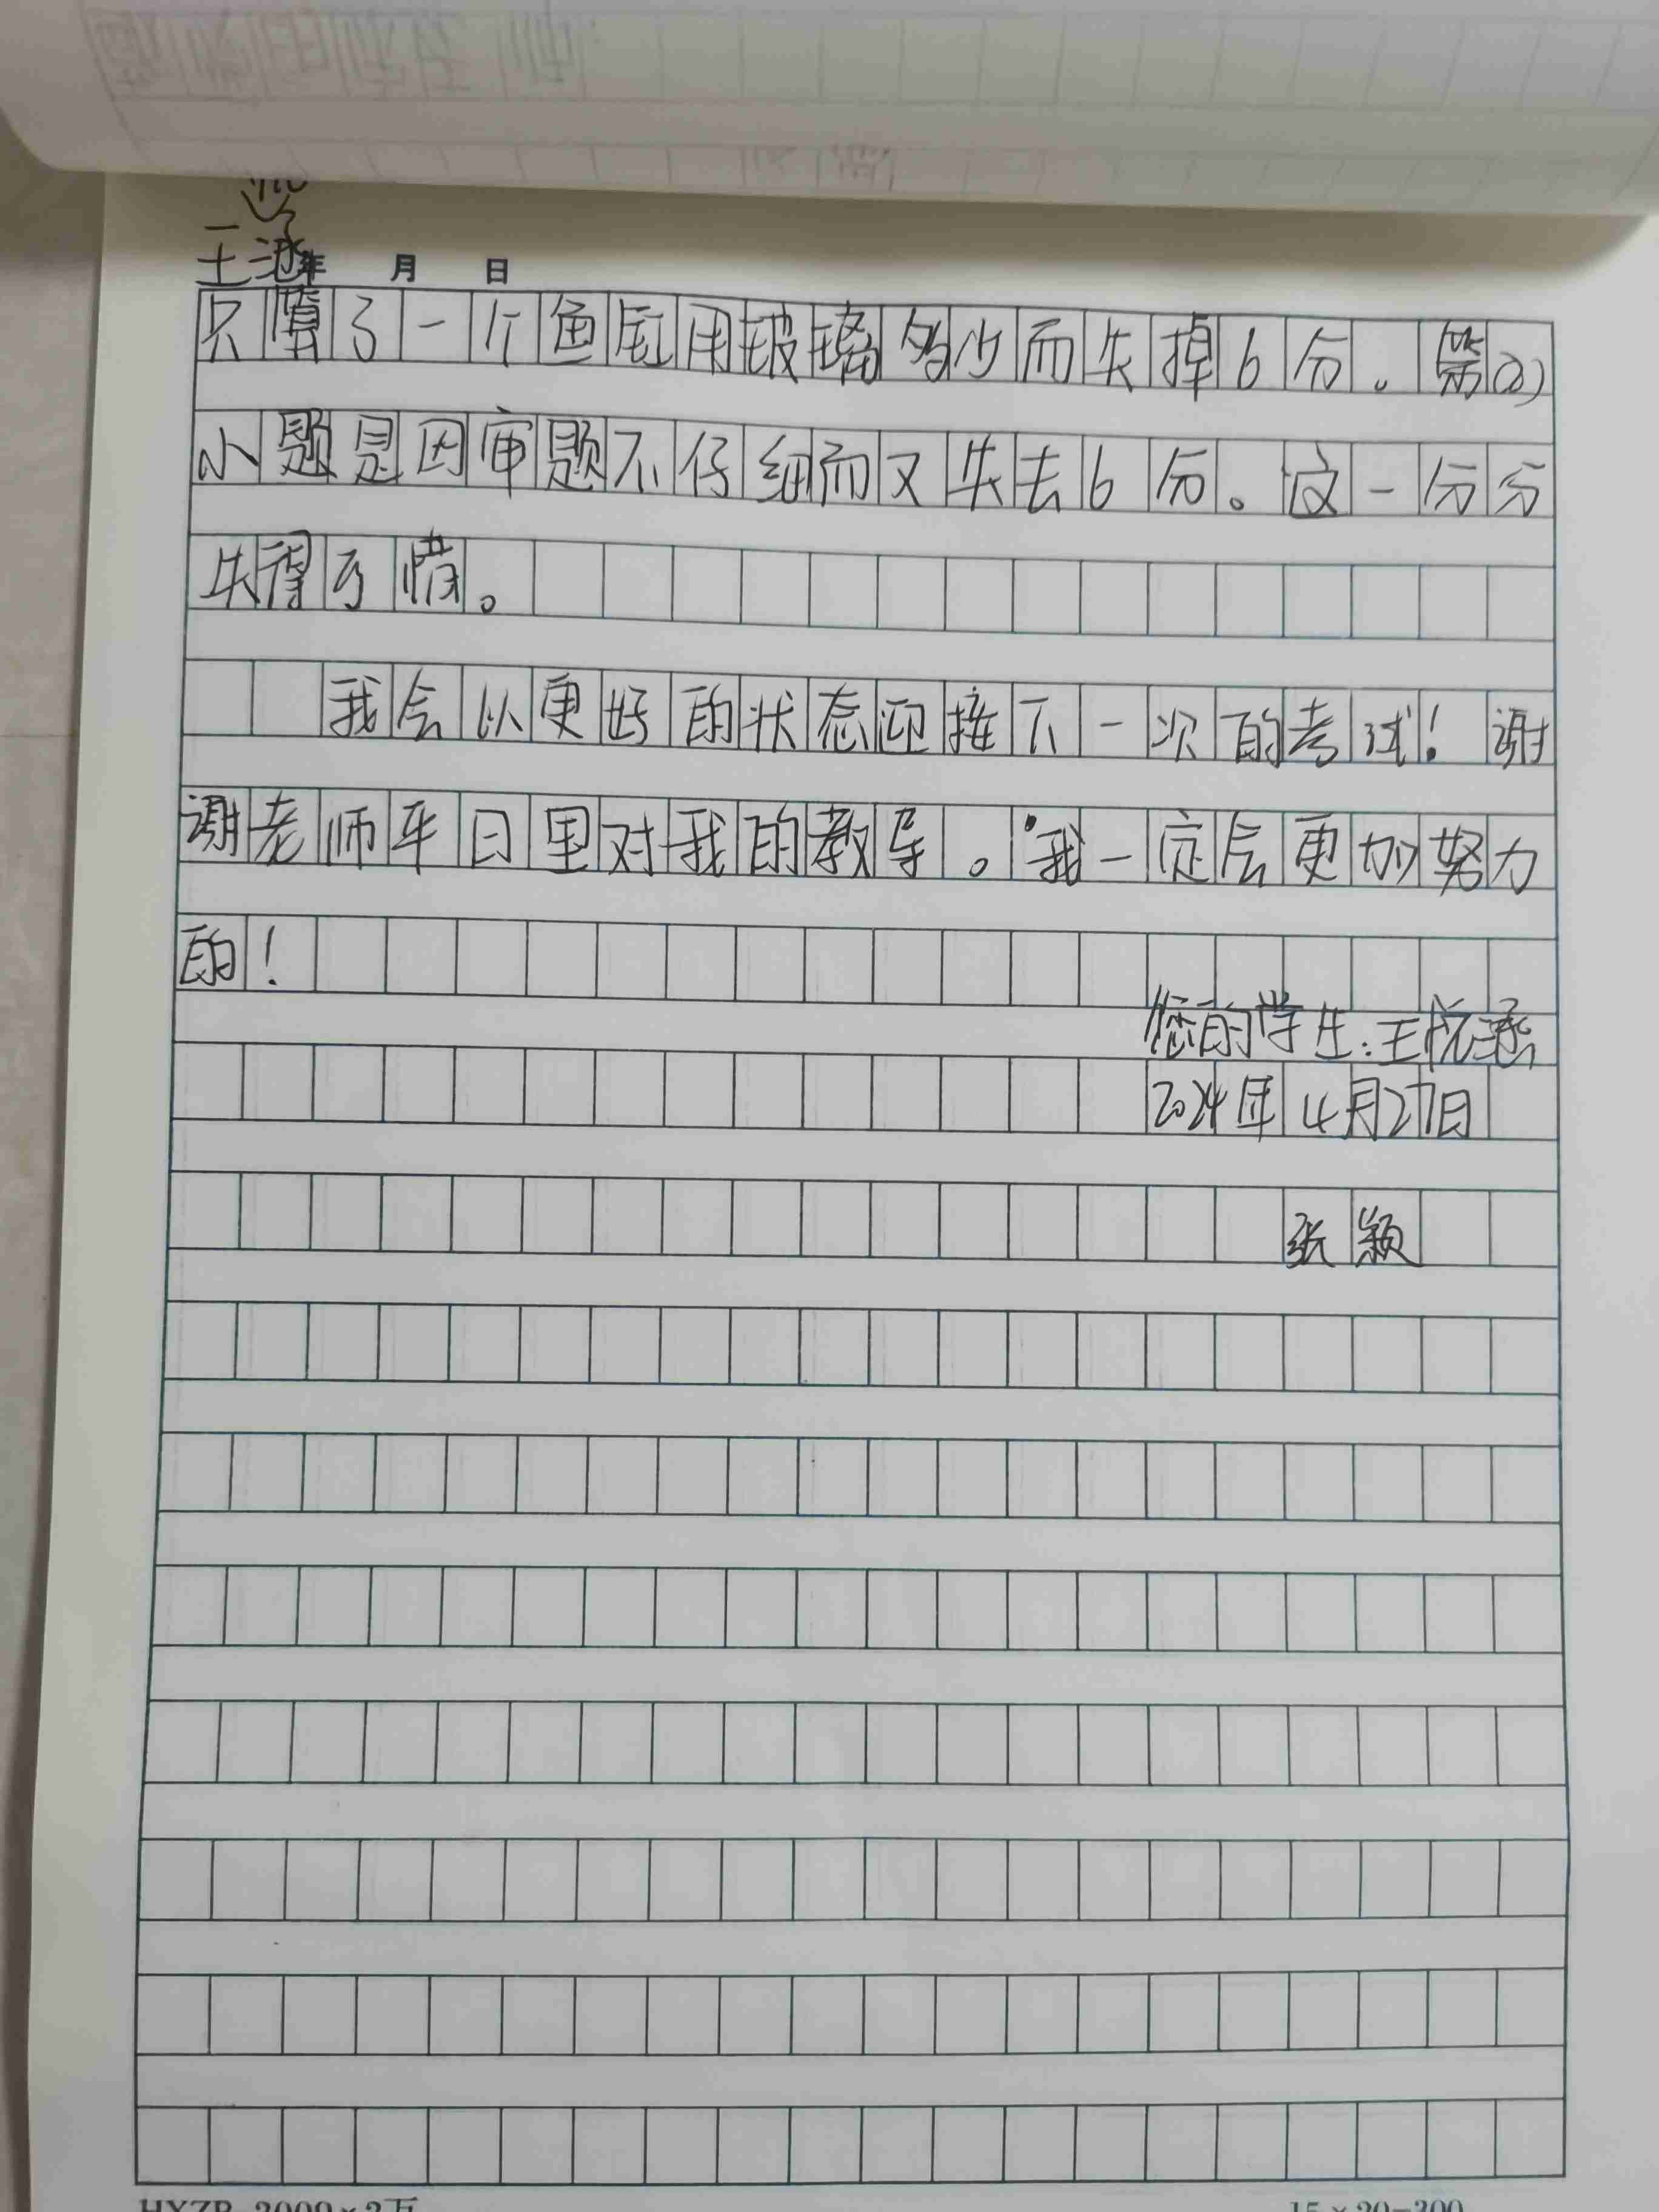 王涵年 月 日
只算了一个鱼缸用玻璃多少而失掉6分。第(2)
小题是因审题不仔细而又失去6分。这一分分
失得可惜。
我会以更好的状态迎接下一次的考试！谢
谢老师平日里对我的教导。我一定会更加努力
的！
您的学生：王悦涵
2024年4月27日
张颖
15×20=300